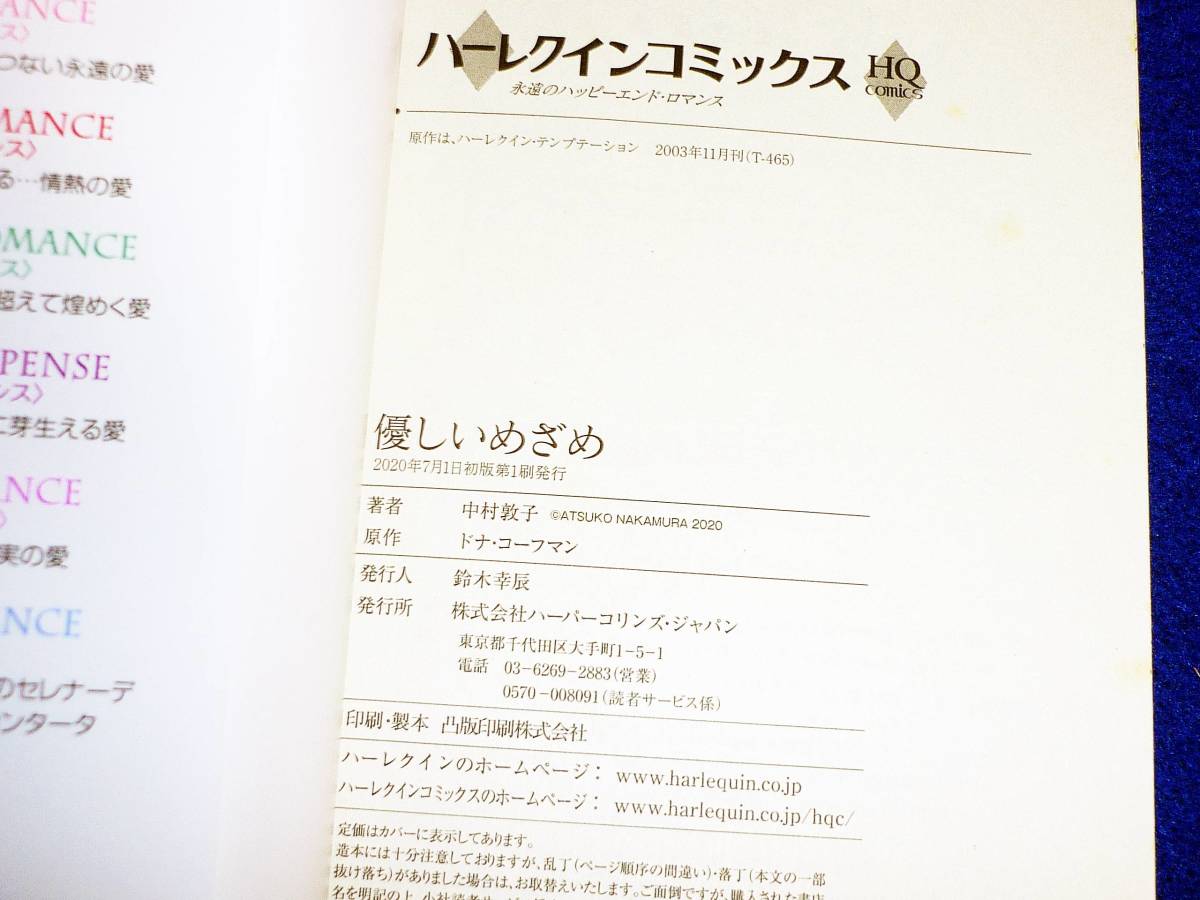 ANCE
ス〉
つない永遠の愛
MANCE
ンス〉
る…情熱の愛
OMANCE
ス〉
超えて煌めく愛
PENSE
ンス〉
に芽生える愛
ANCE
〉
実の愛
ANCE
のセレナーデ
ンタータ
ハーレクインコミックス HQ comics
永遠のハッピーエンド・ロマンス
原作は、ハーレクイン・テンプテーション 2003年11月刊(T-465)
優しいめざめ
2020年7月1日初版第1刷発行
著者 中村敦子 ©ATSUKO NAKAMURA 2020
原作 ドナ・コーフマン
発行人 鈴木幸辰
発行所 株式会社ハーパーコリンズ・ジャパン
東京都千代田区大手町1-5-1
電話 03-6269-2883(営業)
0570-008091(読者サービス係)
印刷・製本 凸版印刷株式会社
ハーレクインのホームページ： www.harlequin.co.jp
ハーレクインコミックスのホームページ： www.harlequin.co.jp/hqc/
定価はカバーに表示してあります。
造本には十分注意しておりますが、乱丁(ページ順序の間違い)・落丁(本文の一部
抜け落ち)がありました場合は、お取替えいたします。ご面倒ですが、購入された書店
名を明記の上、小社読者サービス係